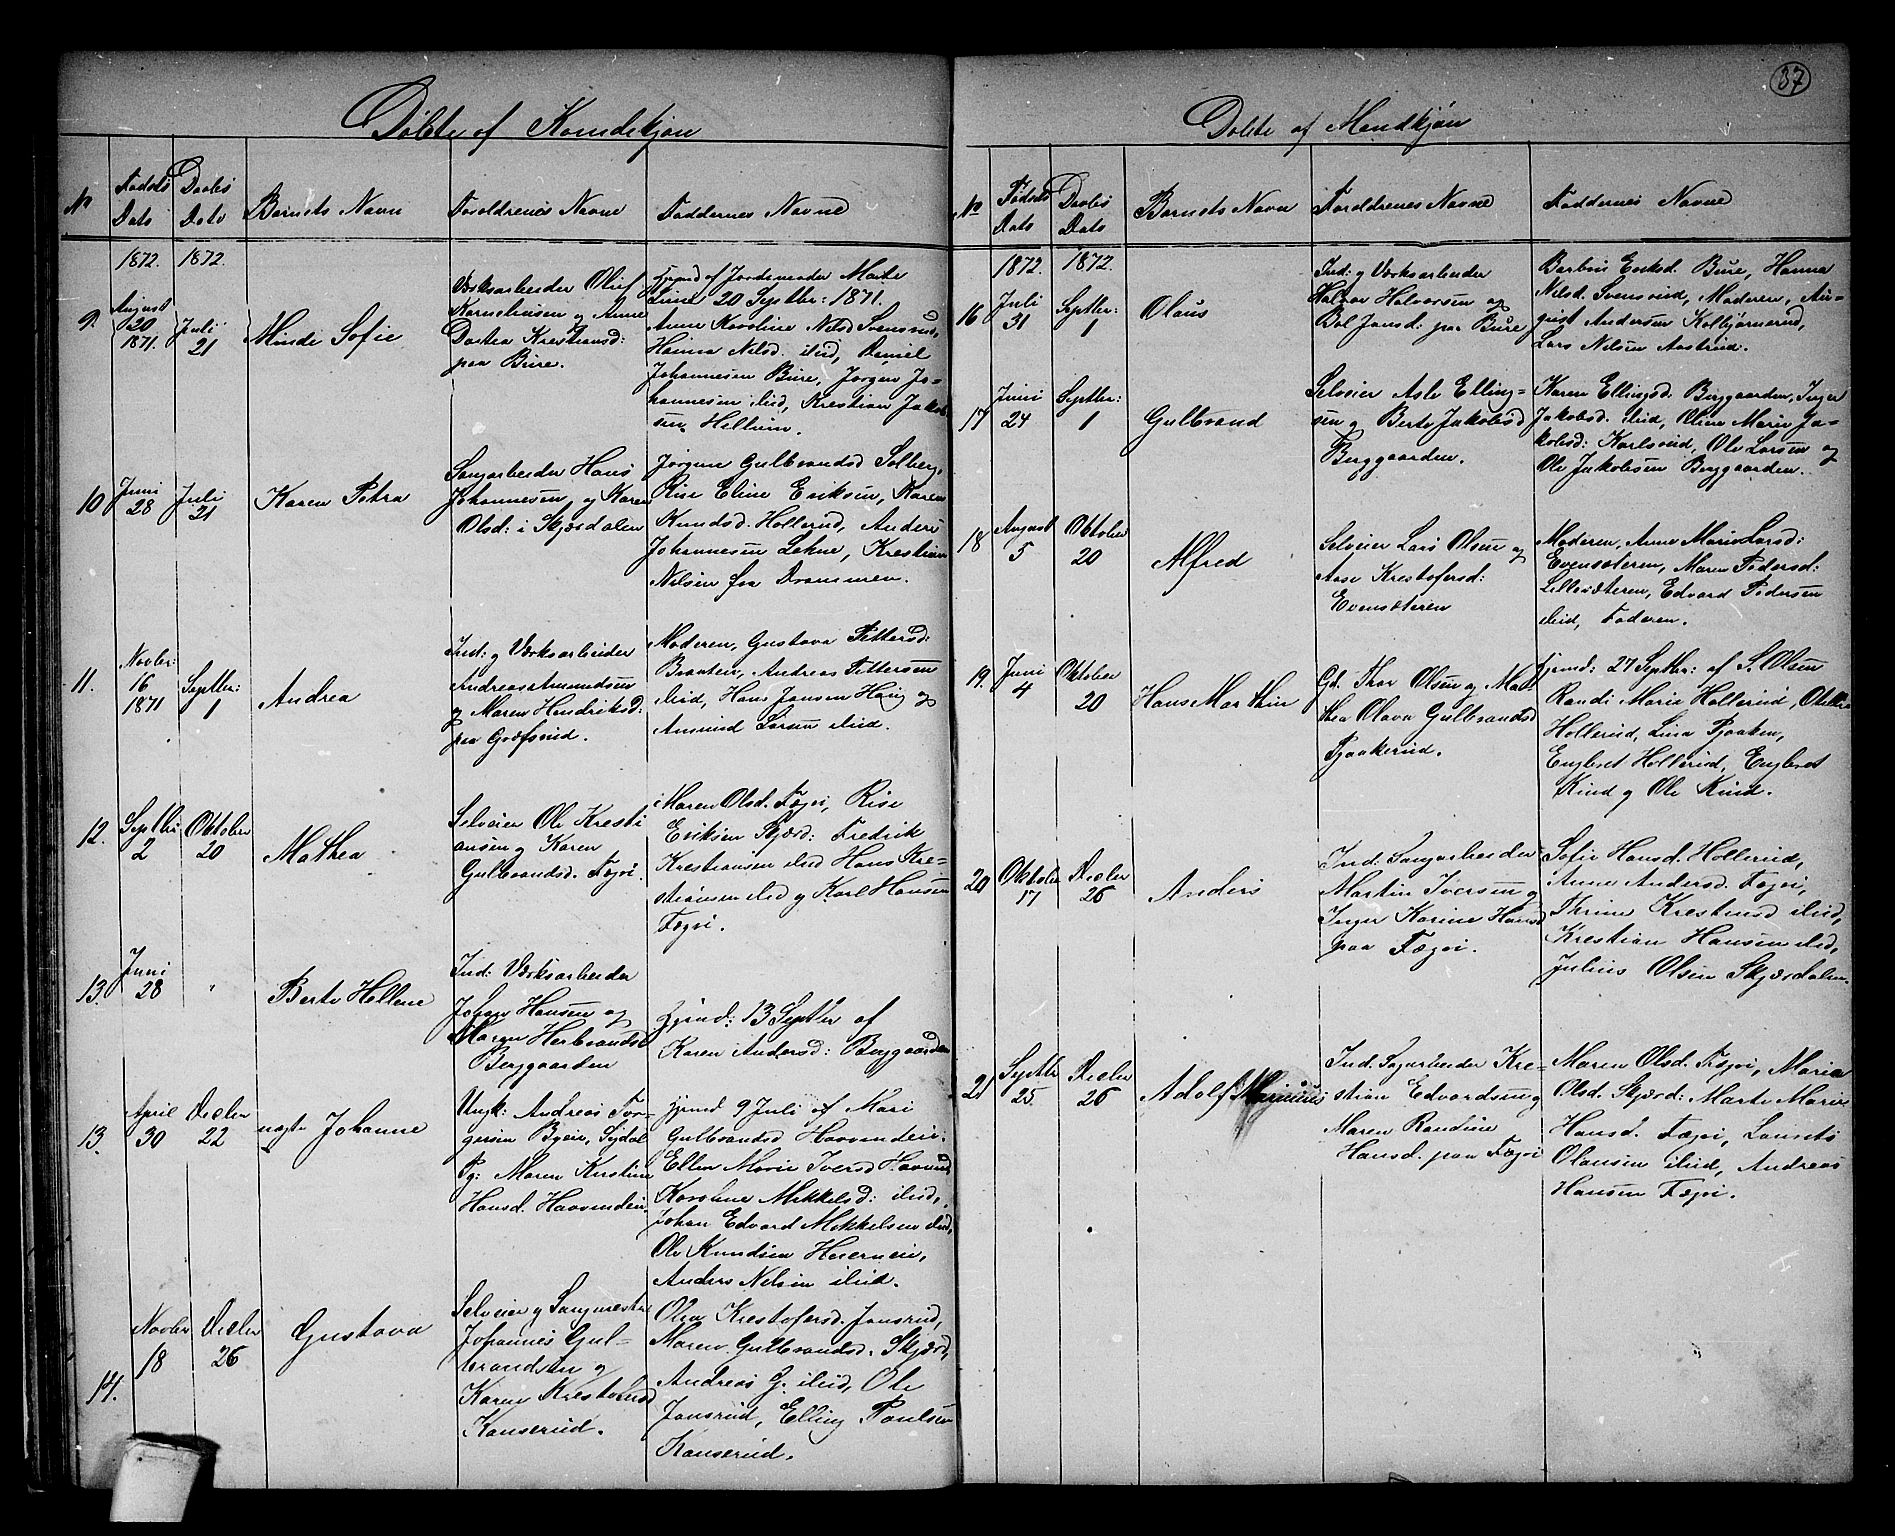 Døbte af Kvindekjøn
No
Fødsels Dato
Daabs Dato
Barnets Navn
Forældrenes Navne
Faddernes Navne
1872. 1872.
9.
August
20
1871.
Juli
21
Minda Sofie
Værksarbeider Oluf
Kornelinsen og Anne
Dortea Krestiansd:
paa Bure.
hjemd. af Jordemoder Marte
Line 20 Septbr: 1871.
Anne Karoline Nilsd Svensrud,
Hanna Nilsd. ibid, Daniel
Johannesen Bure, Jørgen Jo-
hannesen ibid, Krestian Jakob
sen Hellum.
10
Juni
28
Juli
21
Karen Petra
Sagarbeider Hans
Johannesen og Karen
Olsd: i Skjærdalen
Jørgine Gulbrandsd Solberg,
Lise Eline Eriksen, Karen
Knudsd. Hollerud, Anders
Johannesen Lehne, Krestian
Nilsen fra Drammen.
11.
Novbr:
16
1871
Septbr:
1
Andrea
Ind: og Værksarbeider
Andreas Amundsen
og Maren Hendriksd:
paa Græfsrud.
Moderen, Gustava Pettersd:
Braaten, Andreas Pettersen
ibid, Hans Jansen Haug og
Amund Larsen ibid.
12.
Septbr
2
Oktober
20
Mathea
Selveier Ole Kresti
ansen og Karen
Gulbrandsd. Fægri.
Maren Olsd. Fægri, Lise
Eriksen Skjærd: Fredrik
Krestiansen ibid Hans Kre-
stiansen ibid og Karl Hansen
Fægri.
13.
Juni
28
"
Berte Hellene
Ind: Værksarbeider
Johan Hansen og
Maren Herbrandsd
Berggaarden
hjemd: 13 Septbr af
Karen Andersd: Berggaarden
13.
April
30
Decbr
22
uægte Johanne
Ungk: Andreas Tor-
gersen Byeie, Sigdal
Pg: Maren Kirstine
Hansd. Haavendeie
hjemd 9 Juli af Mari
Gulbrandsd Haavendeie.
Ellen Marie Iversd Haavend
Karoline Mikkelsd: ibid,
Johan Edvard Mikkelsen ibid,
Ole Knudsen
Anders Nelsen ibid.
14.
Novbr
18
Decbr
26
Gustava
Selveier og Sagmester
Johannes Gul-
brandsen og
Karen Krestofersd
Kanserud.
Olea Krestofersd. Jonsrud,
Maren Gulbrandsd. Skjærd,
Andreas G. ibid, Ole
Jonsrud, Elling Paulsen
Kanserud.
37
Døbte af Mandkjøn
No
Fødsels Dato
Daabs Dato
Barnets Navn
Forældrenes Navne
Faddernes Navne
1872. 1872.
16
Juli
31
Septbr:
1
Olaus
Ind: og Værksarbeider
Halvor Halvorsen og
Bol Jonsd: paa Bure
Barbro Eriksd. Bure, Hanna
Nilsd. Svensrud, Moderen, Au-
gust Andersen Kolbjørnerud,
Lars Nilsen Aastrud.
17
Juni
24
Septbr:
1
Gulbrand
Selveier Asle Elling-
sen og Berte Jakobsd
Berggaarden.
Karen Ellingsd. Berggaarden, Inger
Jakobsd. ibid, Oline Marie Ja-
kobsd: Karlsrud, Ole Larsen og
Ole Jakobsen Berggaarden.
18
August
5
Oktober
20
Alfred
Selveier Lars Olsen og
Aase Krestofersd:
Evensæteren
Moderen, Anne Marie Larsd:
Evensæteren, Maren Pedersd:
Lillesæteren, Edvard Pedersen
ibid, Faderen.
19.
Juni
4
Oktober
20
Hans Marthin
Gd. Thor Olsen og Mar
thea Olava Gulbrandsd
Pjaakerud.
hjemd: 27 Septbr: af S. Olsen
Randi Marie Hollerud,
Hollerud, Lina Pjaaken,
Engbret Hollerud, Engbret
Rud og Ole Rud.
20
Oktober
17
Decbr
26
Anders
Ind: Sagarbeider
Martin Iversen og
Inger Karine Hansd
paa Fægri.
Sofie Hansd. Hollerud,
Anne Andersd. Fægri,
Thrine Krestensd ibid,
Krestian Hansen ibid,
Julius Olsen Skjærdalen.
21
Septbr
25.
Decbr
26
Adolf Marinius
Ind: Sagarbeider Kre-
stian Edvardsen og
Maren Randine
Hansd. paa Fægri
Maren Olsd. Fægri, Maria
Olsd. Skjærd: Marte Marie
Hansd. Fægri, Laurets
Olausen ibid, Andreas
Hansen Fægri.